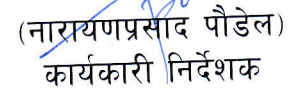 (नारायणप्रसाद पौडेल)
कार्यकारी निर्देशक